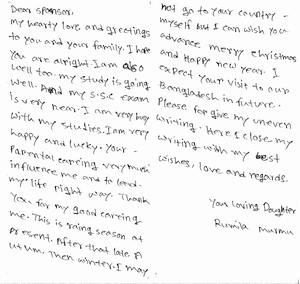 Dear sponsor,
My hearty love and greetings
to you and your family. I hope
You are alright. I am also
well too. my study is going
well. And my S.S.C exam
is very near. I am very busy
with my studies. I am very
happy and lucky. your -
Parental careing very much
influence me and to lead
my life right way. Thank
You for my good careing
me. This is raing season at
present. After that late A
utum. Then winter. I may
not go to your country -
myself but I can wish you
advance merry christmas
and Happy new year. I
expect Your visit to our
Bangladesh in future.
Please for give my uneven
writing. Here I close my
writing with my best
wishes, love and regards.
Your loving Daughter
Rumila Murmu